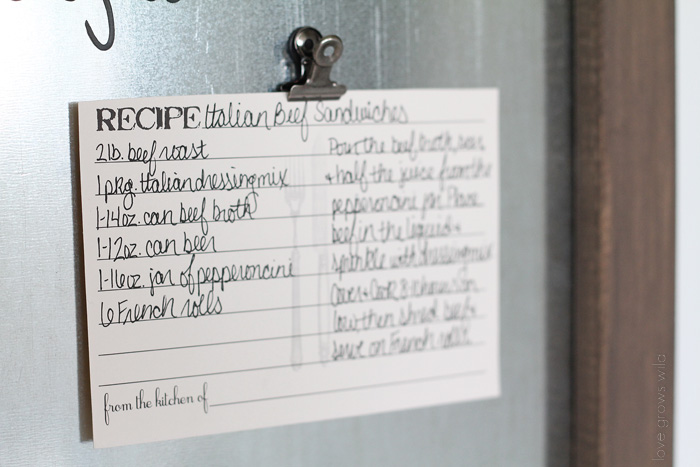 RECIPE Italian Beef Sandwiches
2 lb. beef roast
1 pkg. Italian dressing mix
1-14oz. can beef broth
1-12oz. can beer
1-16oz. jar of pepperoncini
6 French rolls
Pour the beef broth, beer
+ half the juice from the
pepperoncini jar. Place
beef in the liquid +
sprinkle with dressing mix
Cover + Cook 8 hours on
low then shred beef +
serve on French rolls
from the kitchen of
love grows wild